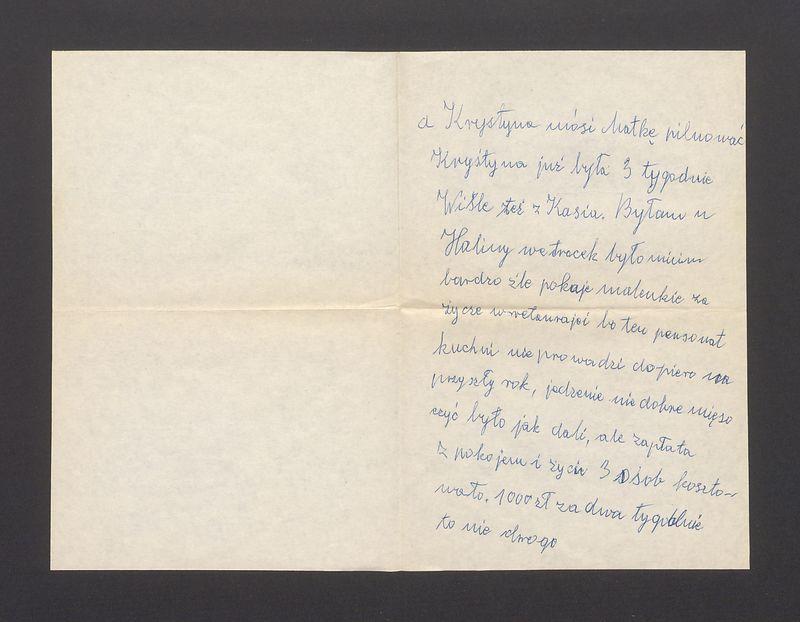 a Krystyna mósi Matkę pilnować
Krystyna już była 3 tygodnie
Wiśle też z Kasia. Byłam u
Haliny we trocek było
bardzo źle pokaje malenkie za
życze w bo ten pensonat
kuchni nie prowadzi dopiero na
przyszły rok, jedzenie nie dobre mięso
czyć było jak dali, ale zapłata
z pokojem i życie 3 osob koszto-
wało. 1000 zł za dwa tygodnie
to nie drogo